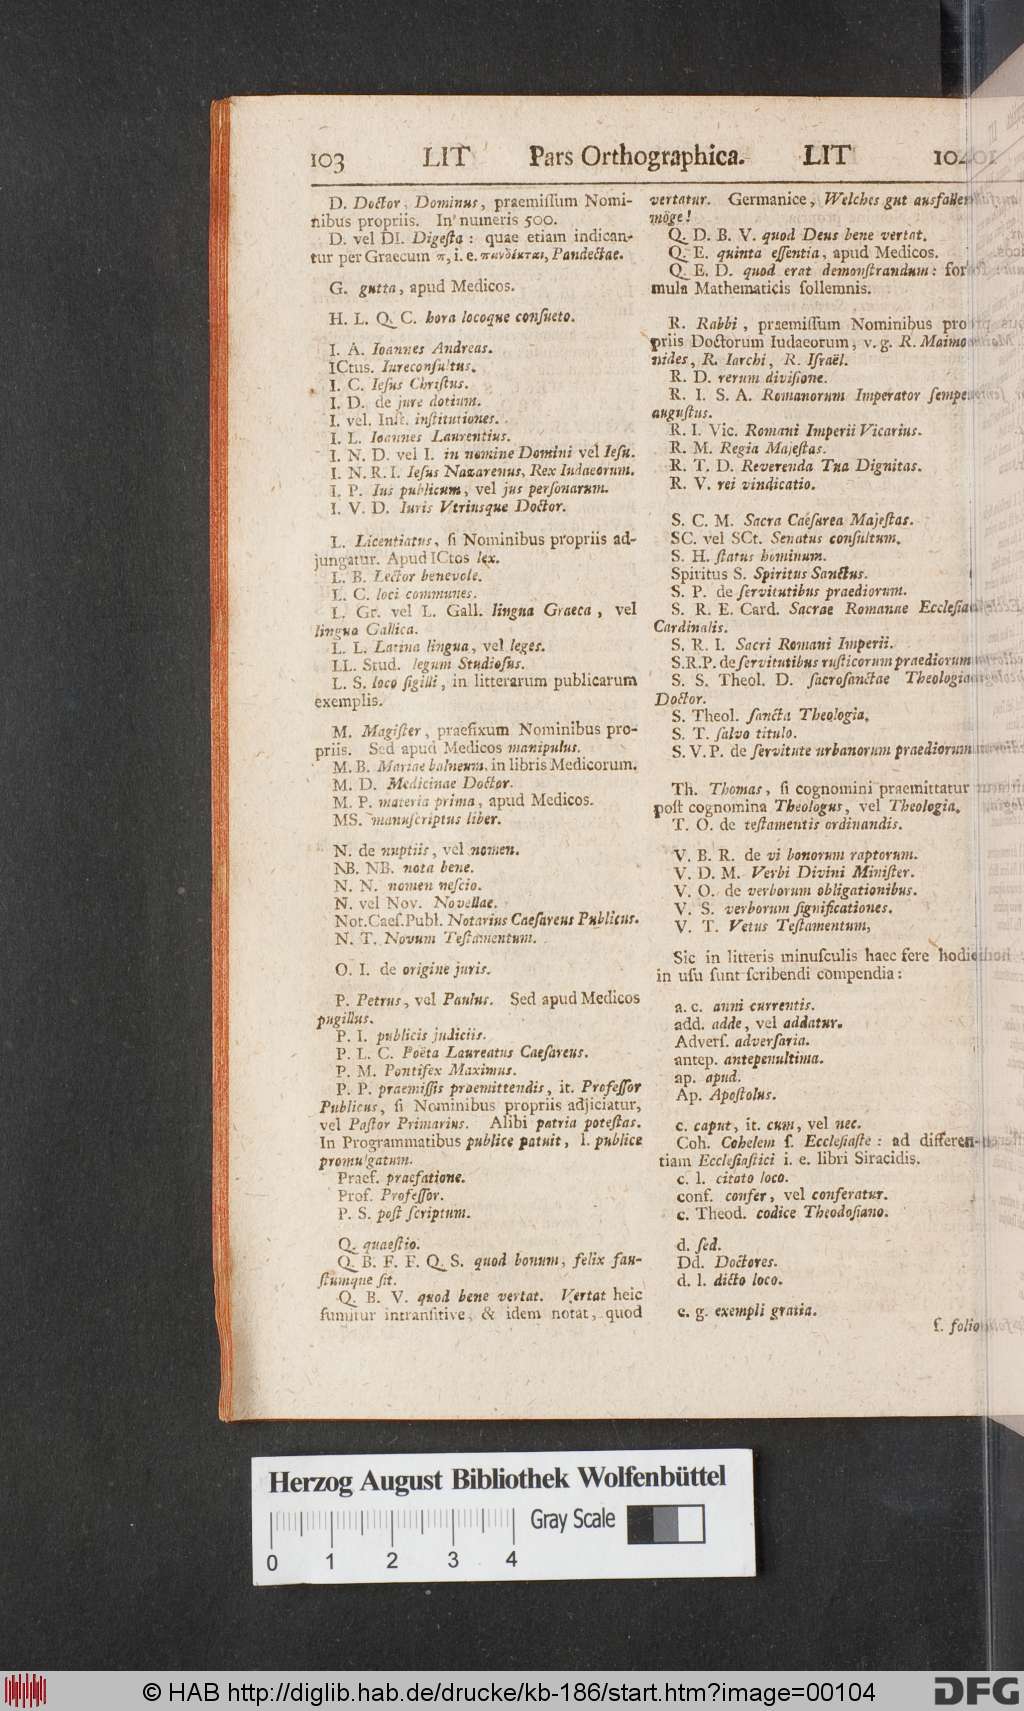 103 LIT Pars Orthographica. LIT 104
D. Doctor, Dominus, praemiſſum Nomi-
nibus propriis. In numeris 500.
D. vel DI. Digeſta : quae etiam indican-
tur per Graecum π, i. e. πανδέκται, Pandectae.
G. gutta, apud Medicos.
H. L. Q. C. hora locoque conſueto.
I. A. Ioannes Andreas.
ICtus. Iureconſultus.
I. C. Ieſus Chriſtus.
I. D. de jure dotium.
I. vel. Inſt. inſtitutiones.
I. L. Ioannes Laurentius.
I. N. D. vel I. in nomine Domini vel Ieſu.
I. N. R. I. Ieſus Nazarenus, Rex Iudaeorum.
I. P. Ius publicum, vel jus perſonarum.
I. V. D. Iuris Vtriusque Doctor.
L. Licentiatus, ſi Nominibus propriis ad-
jungatur. Apud ICtos lex.
L. B. Lector benevole.
L. C. loci communes.
L. Gr. vel L. Gall. lingua Graeca, vel
lingua Gallica.
L. L. Latina lingua, vel leges.
LL. Stud. legum Studioſus.
L. S. loco ſigilli, in litterarum publicarum
exemplis.
M. Magiſter, praefixum Nominibus pro-
priis. Sed apud Medicos manipulus.
M. B. Mariae balneum, in libris Medicorum.
M. D. Medicinae Doctor.
M. P. materia prima, apud Medicos.
MS. manuſcriptus liber.
N. de nuptiis, vel nomen.
NB. NB. nota bene.
N. N. nomen neſcio.
N. vel Nov. Novellae.
Not. Caeſ. Publ. Notarius Caeſareus Publicus.
N. T. Novum Teſtamentum.
O. I. de origine juris.
P. Petrus, vel Paulus. Sed apud Medicos
pugillus.
P. I. publicis judiciis.
P. L. C. Poëta Laureatus Caeſareus.
P. M. Pontifex Maximus.
P. P. praemiſſis praemittendis, it. Profeſſor
Publicus, ſi Nominibus propriis adjiciatur,
vel Paſtor Primarius. Alibi patria poteſtas.
In Programmatibus publice patuit, ſ. publice
promulgatum.
Praef. praefatione.
Prof. Profeſſor.
P. S. poſt ſcriptum.
Q. quaeſtio.
Q. B. F. F. Q. S. quod bonum, felix fau-
ſtumque ſit.
Q. B. V. quod bene vertat. Vertat heic
ſumitur intranſitive, & idem notat, quod
vertatur. Germanice, Welches gut ausfallen
möge!
Q. D. B. V. quod Deus bene vertat.
Q. E. quinta eſſentia, apud Medicos.
Q. E. D. quod erat demonſtrandum : for
mula Mathematicis ſollemnis.
R. Rabbi, praemiſſum Nominibus pro
priis Doctorum Iudaeorum, v. g. R. Maimo
nides, R. Iarchi, R. Iſraël.
R. D. rerum diviſione.
R. I. S. A. Romanorum Imperator ſemper
auguſtus.
R. I. Vic. Romani Imperii Vicarius.
R. M. Regia Majeſtas.
R. T. D. Reverenda Tua Dignitas.
R. V. rei vindicatio.
S. C. M. Sacra Caeſarea Majeſtas.
SC. vel SCt. Senatus conſultum.
S. H. ſtatus hominum.
Spiritus S. Spiritus Sanctus.
S. P. de ſervitutibus praediorum.
S. R. E. Card. Sacrae Romanae Eccleſiae
Cardinalis.
S. R. I. Sacri Romani Imperii.
S. R. P. de ſervitutibus ruſticorum praediorum
S. S. Theol. D. ſacroſanctae Theologiae
Doctor.
S. Theol. ſancta Theologia.
S. T. ſalvo titulo.
S. V. P. de ſervitute urbanorum praediorum
Th. Thomas, ſi cognomini praemittatur
poſt cognomina Theologus, vel Theologia.
T. O. de teſtamentis ordinandis.
V. B. R. de vi bonorum raptorum.
V. D. M. Verbi Divini Miniſter.
V. O. de verborum obligationibus.
V. S. verborum ſignificationes.
V. T. Vetus Teſtamentum,
Sic in litteris minuſculis haec fere hodie
in uſu ſunt ſcribendi compendia :
a. c. anni currentis.
add. adde, vel addatur.
Adverſ. adverſaria.
antep. antepenultima.
ap. apud.
Ap. Apoſtolus.
c. caput, it. cum, vel nec.
Coh. Cohelem ſ. Eccleſiaſte : ad differen-
tiam Eccleſiaſtici i. e. libri Siracidis.
c. l. citato loco.
conf. confer, vel conferatur.
c. Theod. codice Theodoſiano.
d. ſed.
Dd. Doctores.
d. l. dicto loco.
e. g. exempli gratia.
f. folio
Herzog August Bibliothek Wolfenbüttel
Gray Scale
0 1 2 3 4
© HAB http://diglib.hab.de/drucke/kb-186/start.htm?image=00104
DFG